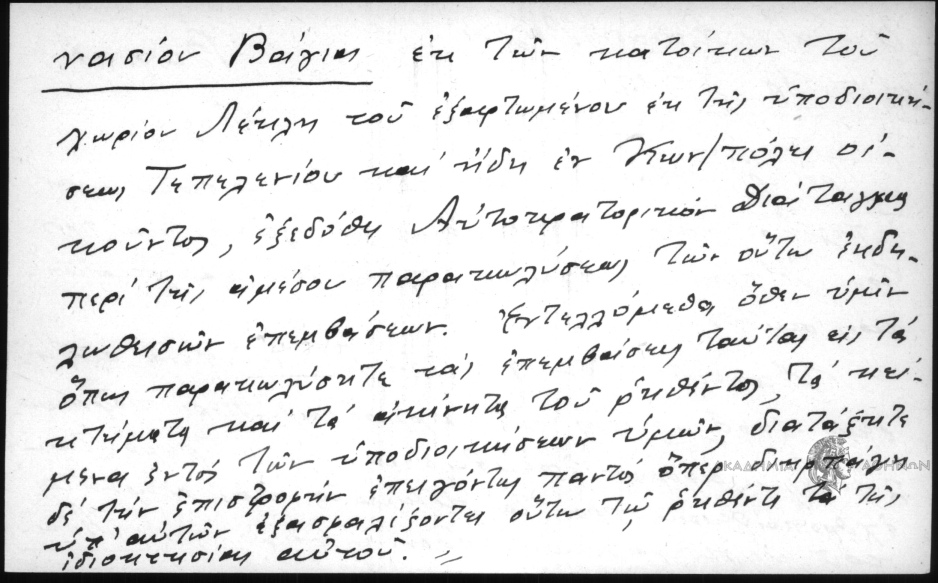 νασίου Βάγια ἐκ τῶν κατοίκων τοῦ
χωρίου Λέκλη τοῦ ἐξαρτωμένου ἐκ τῆς ὑποδιοική-
σεως Τεπελενίου καί ἤδη ἐν Κων/πόλει οἰ-
κοῦντος, ἐξεδόθη Αὐτοκρατορικόν Διάταγμα
περί τῆς ἀμέσου παρακωλύσεως τῶν οὕτω ἐκδη-
λωθεισῶν ἐπεμβάσεων. Ἐντελλόμεθα ὅθεν ὑμῖν
ὅπως παρακωλύσητε τάς ἐπεμβάσεις ταύτας εἰς τά
κτήματα καί τά ἀκίνητα τοῦ ῥηθέντος, τά κεί-
μενα ἐντός τῶν ὑποδιοικήσεων ὑμῶν, διατάξητε
δέ τήν ἐπιστροφήν ἐπειγόντως παντός ὅπερ διηρπάγη
ὑπ' αὐτῶν ἐξασφαλίζοντες οὕτω τῷ ῥηθέντι τά τῆς
ἰδιοκτησίας αὐτοῦ.
ΑΚΑΔΗΜΙΑ ΑΘΗΝΩΝ